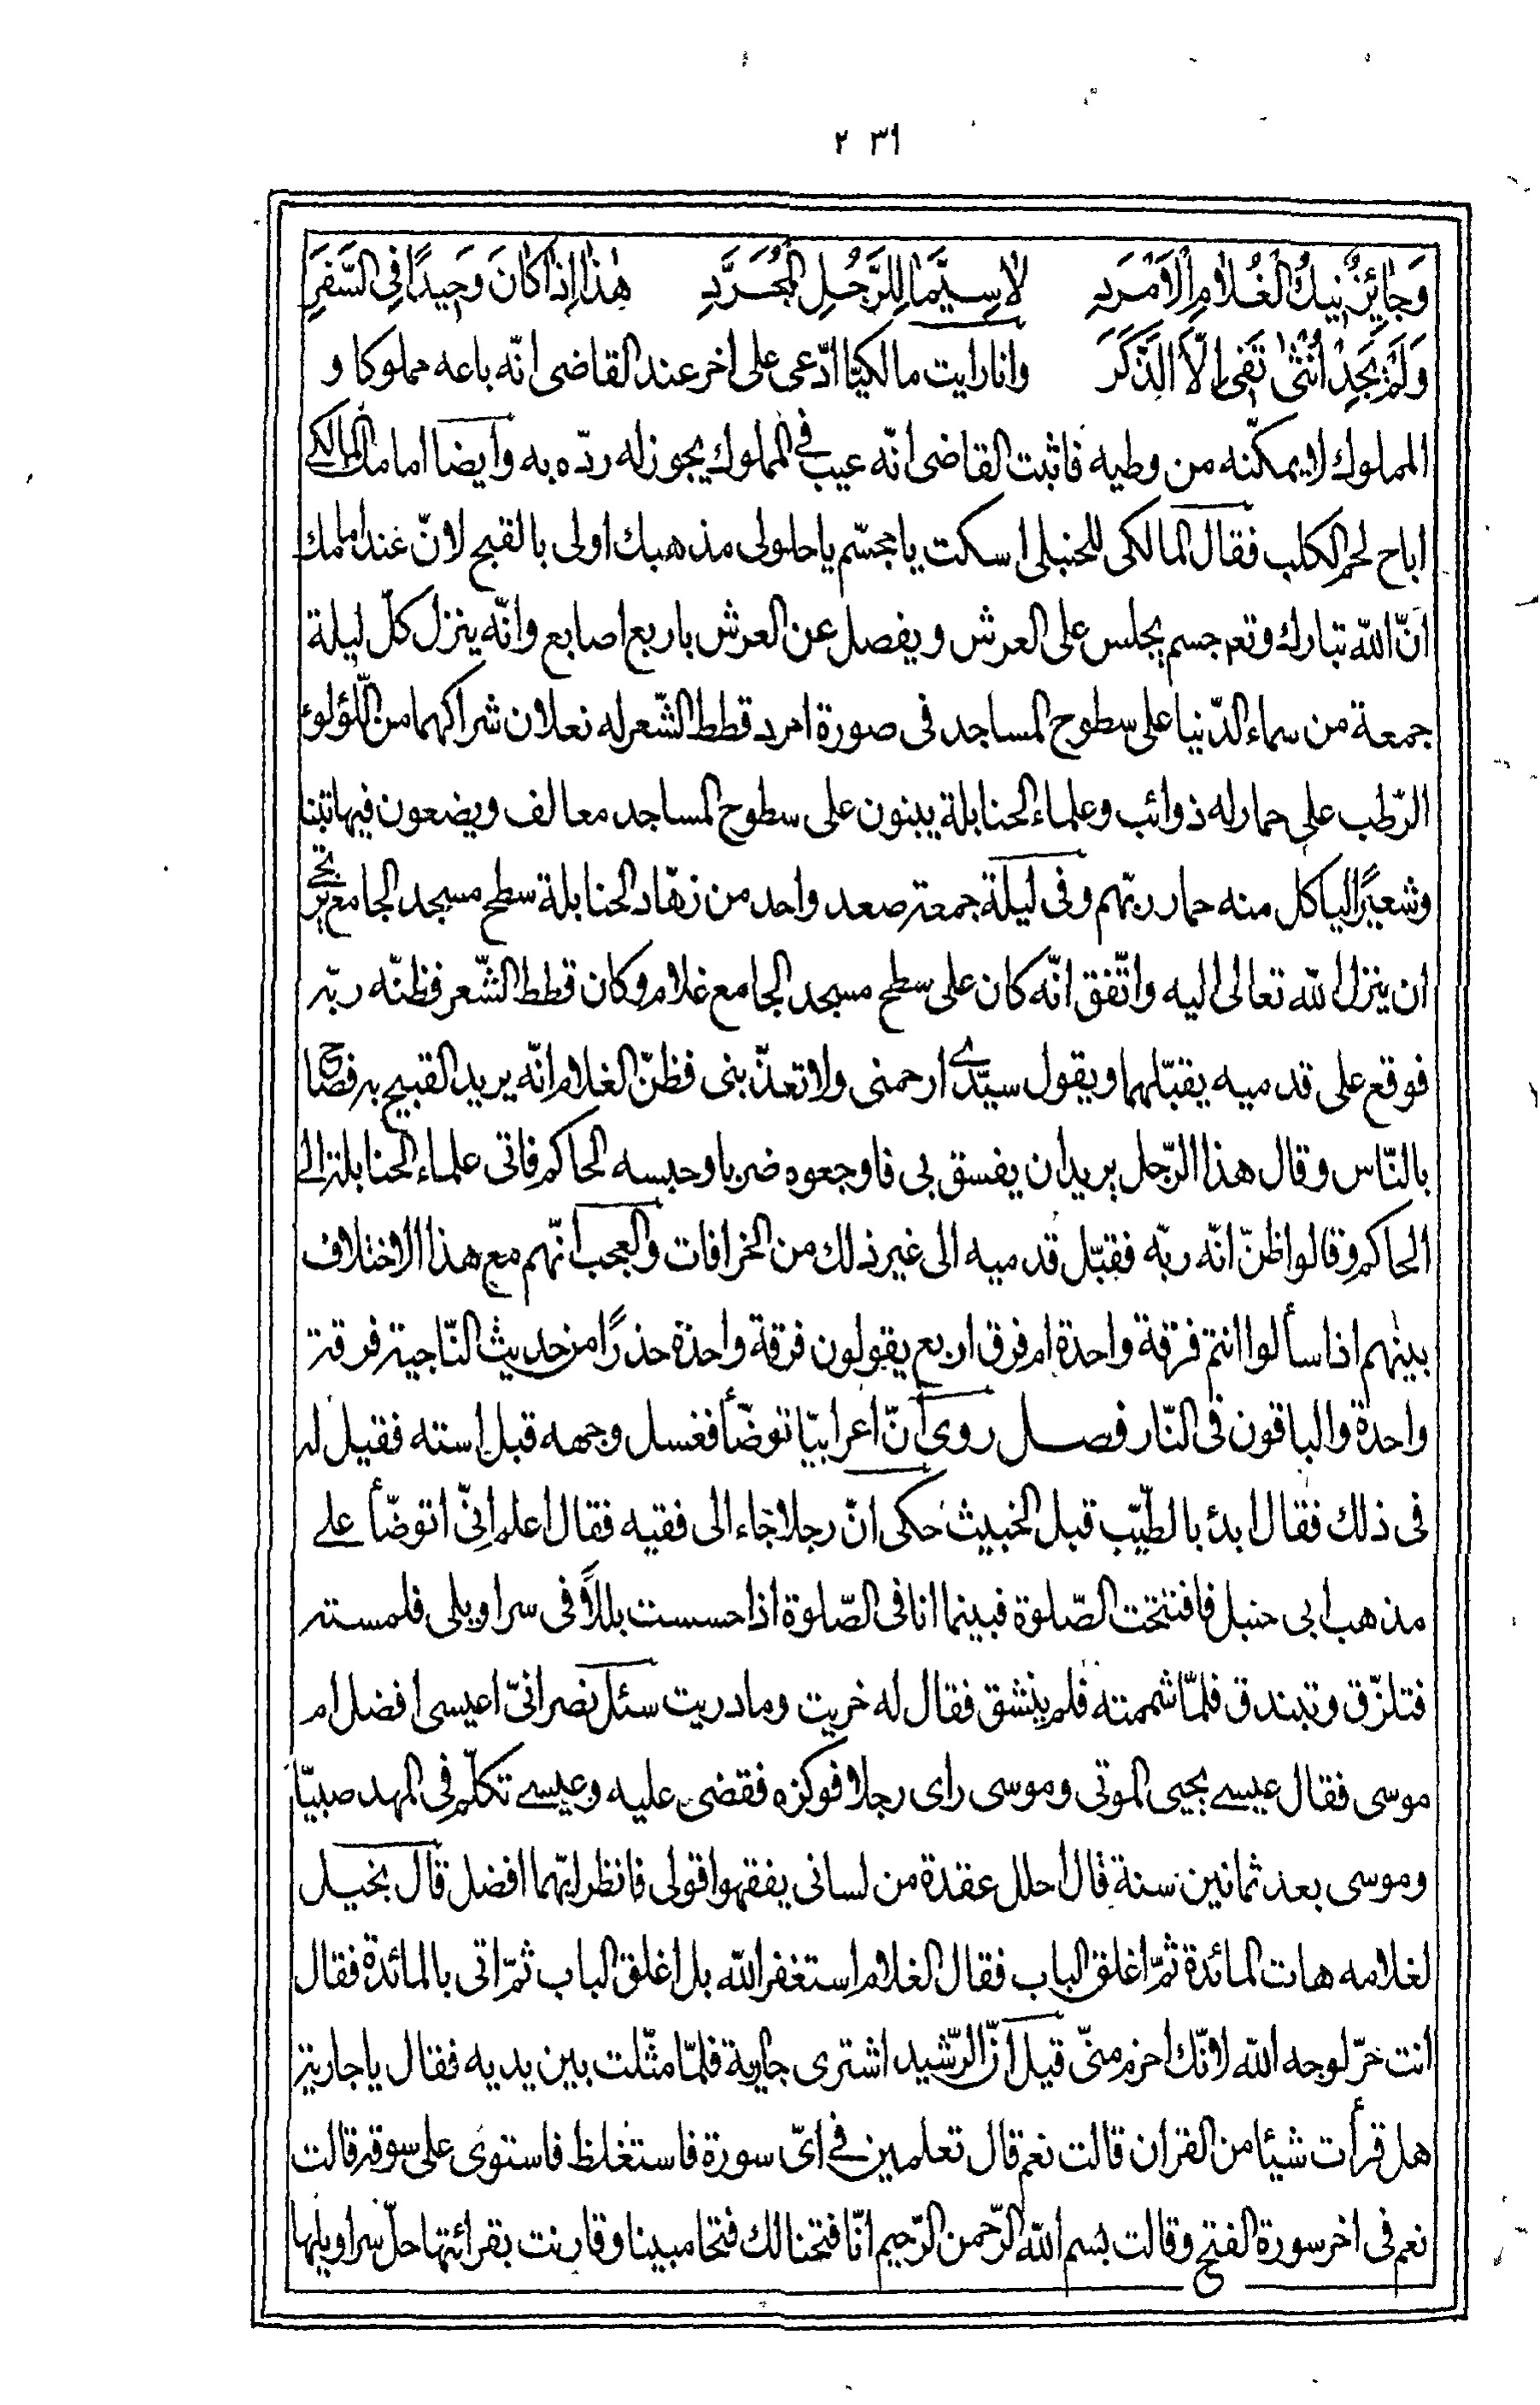 ٢٣١
وَجٰائِزٌ نَيْكُ الْغُلٰامِ الْاَمْرَدِ لٰا سِيَّمٰا لِلرَّجُلِ الْمُجَرَّدِ هٰذٰا اِذٰا كٰانَ وَحِيدًا فِى السَّفَرِ
وَلَمْ يَجِدْ اُنْثىٰ تَفِى اِلَّا الذَّكَرَ وانا رايت مالكيّا ادّعى على اخر عند القاضى انّه باعه مملوكا و
المملوك لا يمكّنه من وطيه فاثبت القاضى انّه عيب فى المملوك يجوز له ردّه به وايضا امامك المالكى
اباح لحم الكلب فقال المالكى للحنبلى اسكت يا مجسّم يا حلولى مذهبك اولى بالقبح لانّ عند امامك
انّ اللّه تبارك وتعم جسم يجلس على العرش ويفصل عن العرش باربع اصابع وانّه ينزل كلّ ليلة
جمعة من سماء الدّنيا على سطوح المساجد فى صورة امرد قطط الشّعر له نعلان شراكهما من اللّؤلوء
الرّطب على حمار له ذوائب وعلماء الحنابلة يبنون على سطوح المساجد معالف ويضعون فيها تبنا
وشعيرًا لياكل منه حمار ربّهم وفى ليلة جمعة صعد واحد من زهّاد الحنابلة سطح مسجد الجامع يترجّى
ان ينزل اللّه تعالى اليه واتّفق انّه كان على سطح مسجد الجامع غلام وكان قطط الشّعر فظنّه ربّه
فوقع على قدميه يقبّلهما ويقول سيّدى ارحمنى ولا تعذّبنى فظنّ الغلام انّه يريد القبيح به فصاح
بالنّاس وقال هذا الرّجل يريد ان يفسق بى فاوجعوه ضربا وحبسه الحاكم فاتى علماء الحنابلة الى
الحاكم وقالوا ظنّ انّه ربّه فقبّل قدميه الى غير ذلك من الخرافات والعجب انّهم مع هذا الاختلاف
بينهم اذا سألوا انتم فرقة واحدة ام فرق اربع يقولون فرقة واحدة حذرًا من حديث النّاجية فرقة
واحدة والباقون فى النّار فصل روى انّ اعرابيّا توضّأ فغسل وجهه قبل استه فقيل له
فى ذلك فقال ابدء بالطيّب قبل الخبيث حكى انّ رجلا جاء الى فقيه فقال اعلم انّى اتوضّأ على
مذهب ابى حنبل فافتتحت الصّلوة فبينما انا فى الصّلوة اذا حسست بللًا فى سراويلى فلمسته
فتلزّق وتبندق فلمّا شممته فلم ينشق فقال له خريت وما دريت سئل نصرانىّ اعيسى افضل ام
موسى فقال عيسى يحيى الموتى وموسى راى رجلا فوكزه فقضى عليه وعيسى تكلّم فى المهد صبيّا
وموسى بعد ثمانين سنة قال احلل عقدة من لسانى يفقهوا قولى فانظر ايّهما افضل قال بخيل
لغلامه هات المائدة ثمّ اغلق الباب فقال الغلام استغفر اللّه بل اغلق الباب ثمّ اتى بالمائدة فقال
انت حرّ لوجه اللّه لانّك احزم منّى قيل انّ الرّشيد اشترى جارية فلمّا مثّلت بين يديه فقال يا جارية
هل قرأت شيئا من القران قالت نعم قال تعلمين فى اىّ سورة فاستغلظ فاستوى على سوقه قالت
نعم فى اخر سورة الفتح وقالت بسم اللّه الرّحمن الرّحيم انّا فتحنا لك فتحا مبينا وقارنت بقرائتها حلّ سراويلها